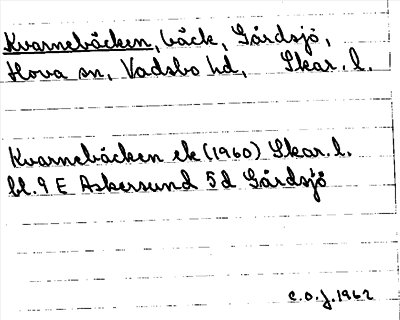 Kvarnebäcken, bäck, Gårdsjö,
Hova sn, Vadsbo hd, Skar. l.
Kvarnebäcken ek (1960) Skar. l.
bl. 9 E Askersund 5d Gårdsjö
C.O.J. 1962